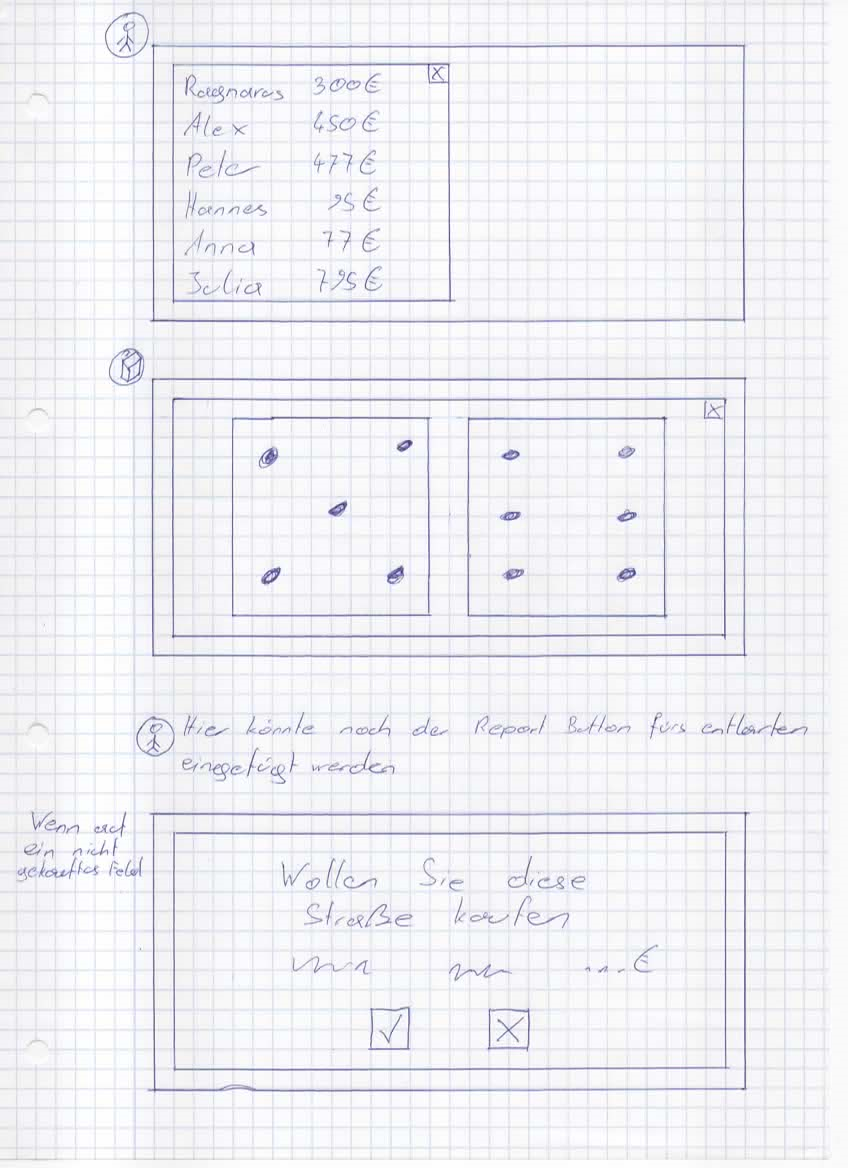 X
Ragnaros 300€
Alex 450€
Peter 477€
Hannes 95€
Anna 77€
Julia 795€
X
Hier könnte noch der Report Button fürs entlarten
eingefügt werden
Wenn auf
ein nicht
gekauftes Feld
Wollen Sie diese
Straße kaufen
....€